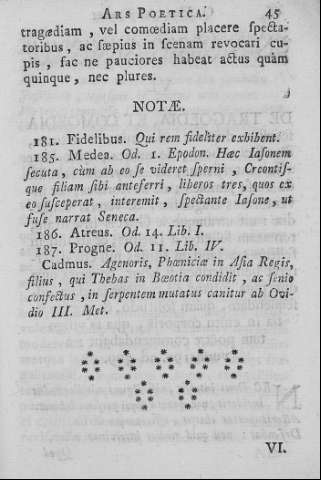 ARS POETICA. 45
tragœdiam, vel comœdiam placere specta-
toribus, ac sæpius in scenam revocari cu-
pis, fac ne pauciores habeat actus quàm
quinque, nec plures.
NOTÆ.
181. Fidelibus. Qui rem fideliter exhibent.
185. Medea. Od. 1. Epodon. Hæc Iasonem
secuta, cùm ab eo se videret sperni, Creontis-
que filiam sibi anteferri, liberos tres, quos ex
eo susceperat, interemit, spectante Iasone, ut
fuse narrat Seneca.
186. Atreus. Od. 14. Lib. I.
187. Progne. Od. 11. Lib. IV.
Cadmus. Agenoris, Phœniciæ in Asia Regis,
filius, qui Thebas in Bœotia condidit, ac senio
confectus, in serpentem mutatus canitur ab Ovi-
dio III. Met.
VI.